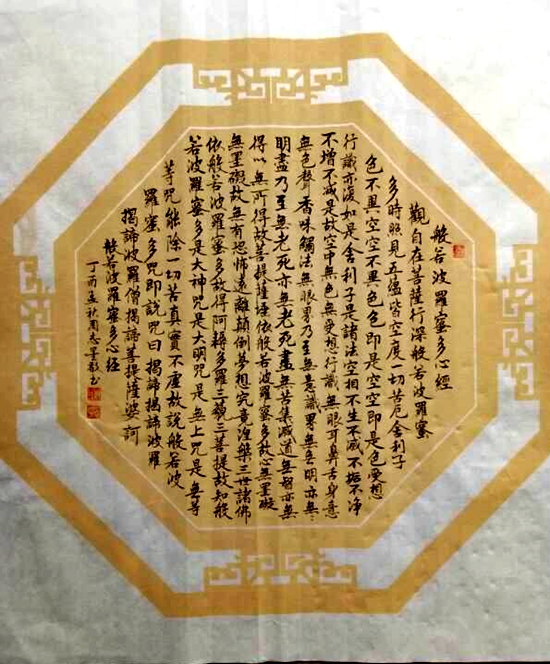 般若波羅蜜多心經
觀自在菩薩行深般若波羅蜜
多時照見五蘊皆空度一切苦厄舍利子
色不異空空不異色色即是空空即是色受想
行識亦復如是舍利子是諸法空相不生不滅不垢不净
不增不減是故空中無色無受想行識無眼耳鼻舌身意
無色聲香味觸法無眼界乃至無意識界無無明亦無
明盡乃至無老死亦無老死盡無苦集滅道無智亦無
得以無所得故菩提薩埵依般若波羅蜜多故心無罣礙
無罣礙故無有恐怖遠離顛倒夢想究竟涅槃三世諸佛
依般若波羅蜜多故得阿耨多羅三藐三菩提故知般
若波羅蜜多是大神咒是大明咒是無上咒是無等
等咒能除一切苦真實不虛故說般若波
羅蜜多咒即說咒曰揭諦揭諦波羅
揭諦波羅僧揭諦菩提薩婆訶
般若波羅蜜多心經
丁酉孟秋周志